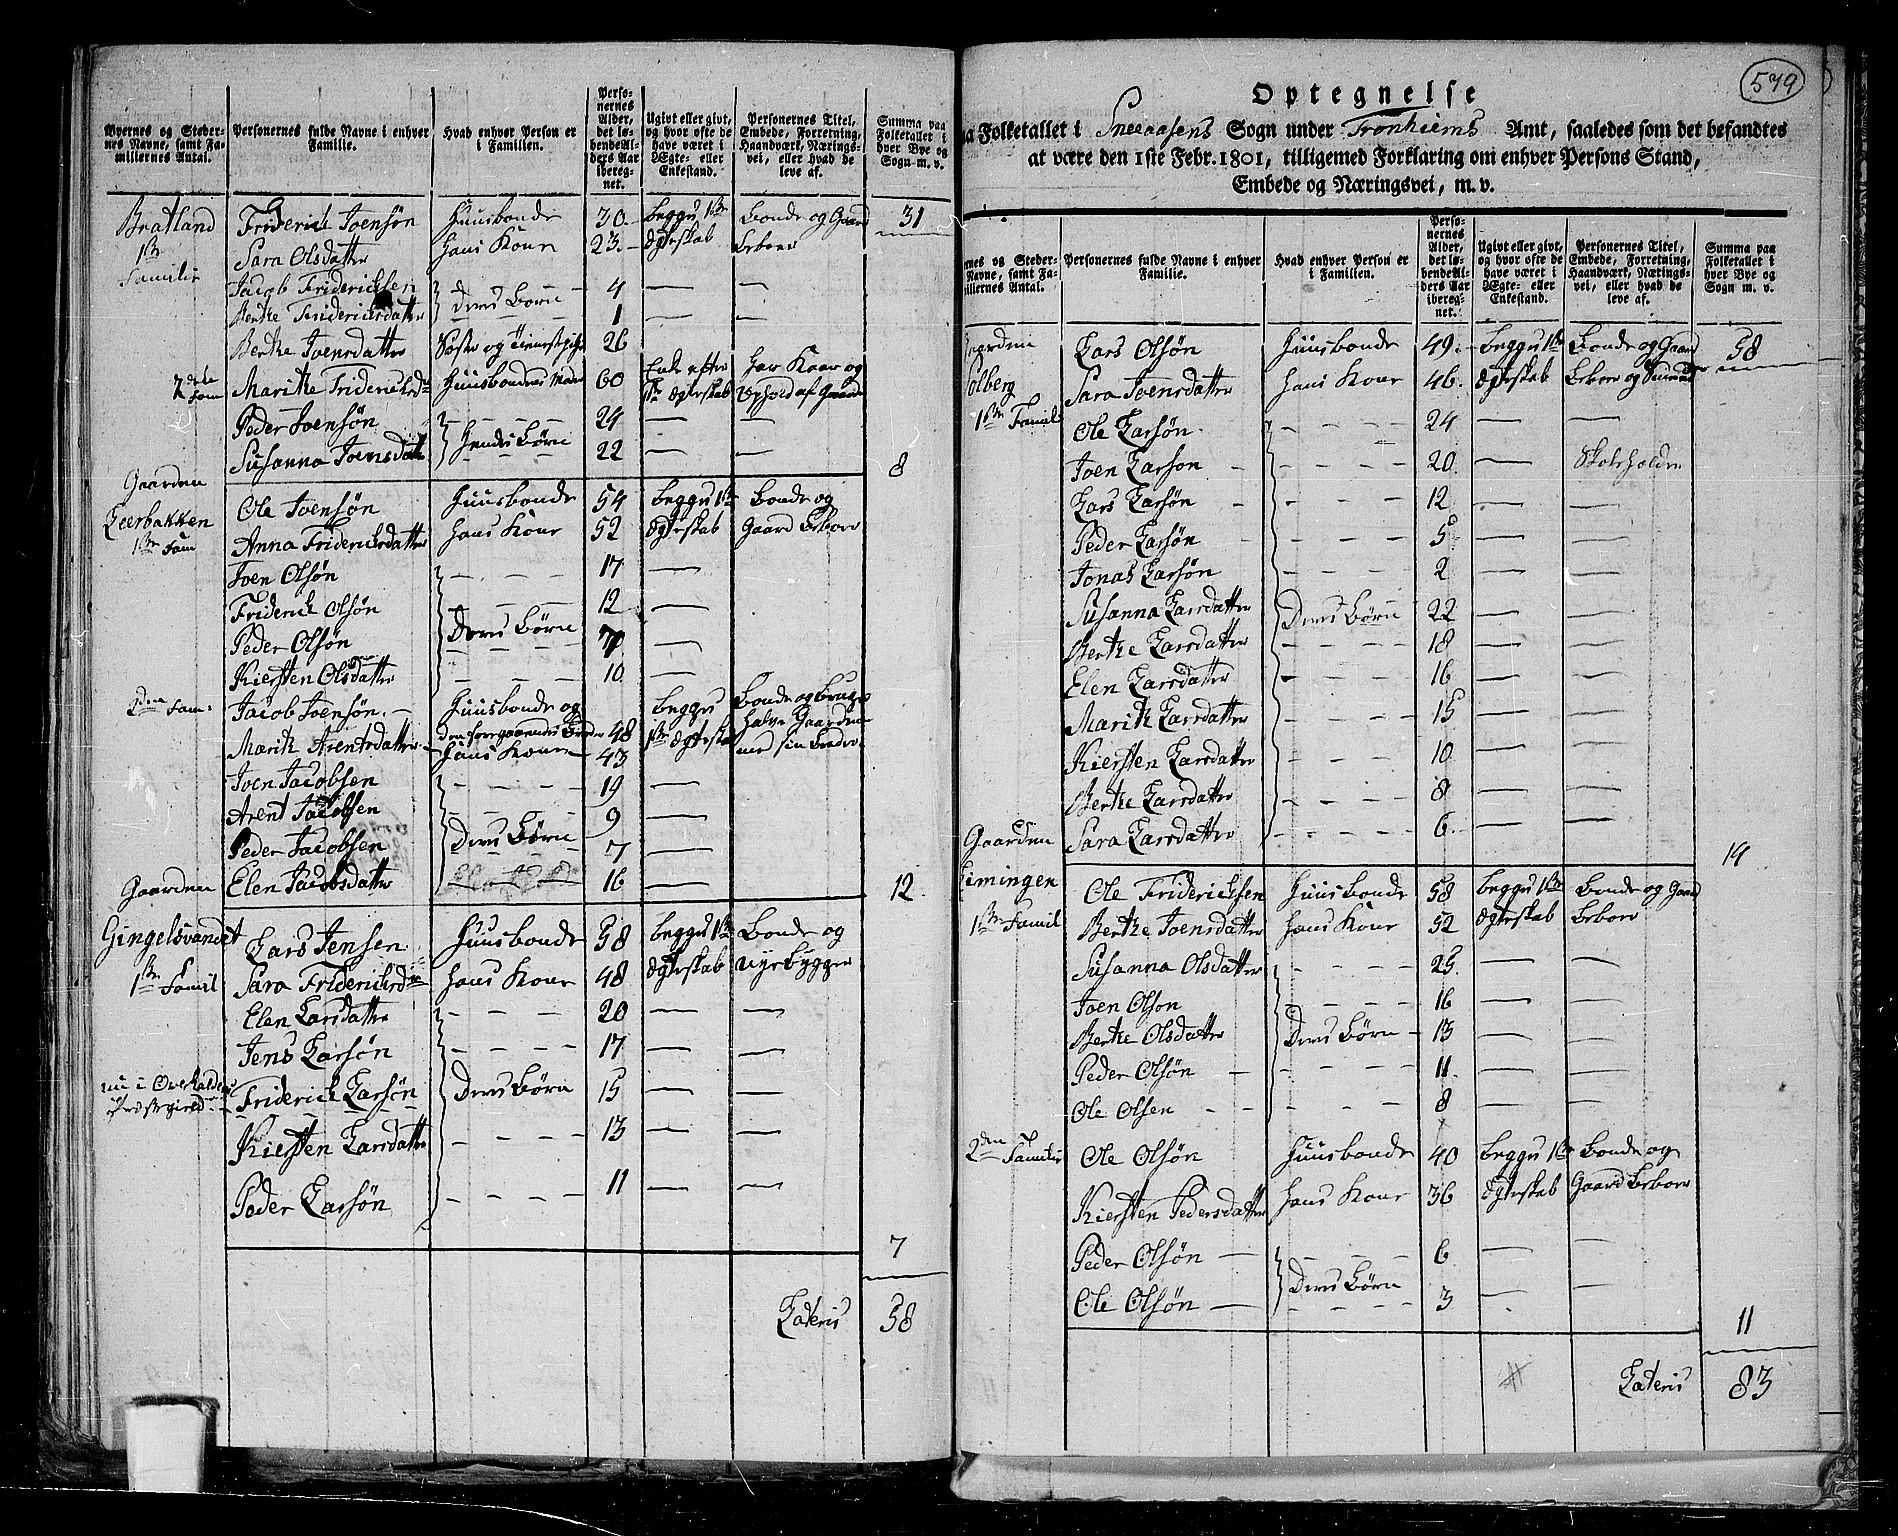 Byernes og Steder-
nes Navne, samt Fa-
miliernes Antal.
Personernes fulde Navne i enhver
Familie.
Hvad enhver Person er
i Familien.
Perso-
nernes
Alder,
det lø-
bende Al-
ders Aar
ibereg-
net.
Ugivt eller givt,
og hvor ofte de
have været i
Ægte- eller
Enkestand.
Personernes Titel,
Embede, Forretning,
Haandværk, Nærings-
vei, eller hvad de
leve af.
Summa paa
Folketallet i
hver Bye og
Sogn m. v.
Bratland Friderich Joensøn Huusbonde 30 begge 1ste Bonde og Gaard 31
1ste Sara Olsdatter Hans Kone 23 Ægteskab beboer
Familie Jacob Friderichsen 4 — —
Berthe Friderichsdatter Deres Børn 1 — —
Berthe Joensdatter 26
2den Fam Marithe Friderichsdr Huusbondens Moder 60 Enke efter 1ste Ægteskab Har Kaar og Ophold af Gaarden
Peder Joensøn 24 — —
Susanna Joensdatt Hendes Børn 22 — — 8
Gaarden
Leerbakken Ole Joensøn Huusbonde 54 begge 1ste Bonde og
1ste Fam Anna Friderichsdatter Hans Kone 52 Ægteskab Gaard beboer
Joen Olsøn 17 —
Friderich Olsøn 12 —
Peder Olsøn Deres Børn 7 —
Kiersten Olsdatter 10 —
2den Fam: Jacob Joensøn Huusbonde og begge Bonde og bruger
den foregaaendes Broder 48 1ste Ægteskab halve Gaarden
Marit Arentsdatter Hans Kone 43 med sin Broder
Joen Jacobsen 19 —
Arent Jacobsen 9 —
Peder Jacobsen Deres Børn 7 —
Gaarden Elen Jacobsdatter 16 — 12
Gingelsvandet Lars Jensen Huusbonde 58 begge 1ste Bonde og
1ste Famil Sara Friderichsdr Hans Kone 48 Ægteskab Nyebygger
Elen Larsdatter 20 — —
Jens Larsøn 17 — —
nu i Overhaldens Præstegield Friderich Larsøn Deres Børn 15 — —
Kiersten Larsdatter 13 — —
Peder Larsøn 11 — —
7
Lateris 58
579
Optegnelse
paa Folketallet i Sneeaasens Sogn under Tronhiems Amt, saaledes som det befandtes
at være den 1ste Febr. 1801, tilligemed Forklaring om enhver Persons Stand,
Embede og Næringsvei, m. v.
nes og Steder-
Navne, samt Fa-
iliernes Antal.
Personernes fulde Navne i enhver
Familie.
Hvad enhver Person er
i Familien.
Perso-
nernes
Alder,
det lø-
bende Al-
ders Aar
ibereg-
net.
Ugivt eller givt,
og hvor ofte de
have været i
Ægte- eller
Enkestand.
Personernes Titel,
Embede, Forretning,
Haandværk, Nærings-
vei, eller hvad de
leve af.
Summa paa
Folketallet i
hver Bye og
Sogn m. v.
Gaarden Lars Olsøn Huusbonde 49 begge 1ste Bonde og Gaard 58
Solberg Sara Joensdatter Hans Kone 46 Ægteskab beboer og
1ste Famil Ole Larsøn 24 — —
Joen Larson 20 — Skoleholder
Lars Larsøn 12 — —
Peder Larsøn 5 — —
Jonas Larsøn 2 — —
Susanna Larsdatter Deres Børn 22 — —
Berthe Larsdatter 18 — —
Elen Larsdatter 16 — —
Marit Larsdatter 15 — —
Kiersten Larsdatter 10 — —
Berthe Larsdatter 8 — —
Gaarden Sara Larsdatter 6 — — 14
Eimingen Ole Friderichsen Huusbonde 58 begge 1ste Bonde og Gaard
1ste Famil Berthe Joensdatter Hans Kone 52 Ægteskab beboer
Susanna Olsdatter 25 — —
Joen Olson 16 — —
Berthe Olsdatter Deres Børn 13 — —
Peder Olsøn 11 — —
Ole Olsen 8 — —
2den Familie Ole Olsøn Huusbonde 40 begge 1ste Bonde og
Kiersten Pedersdatter Hans Kone 36 Ægteskab Gaard beboer
Peder Olsøn 6 — —
Ole Olsøn Deres Børn 3 —
11
Lateris 83